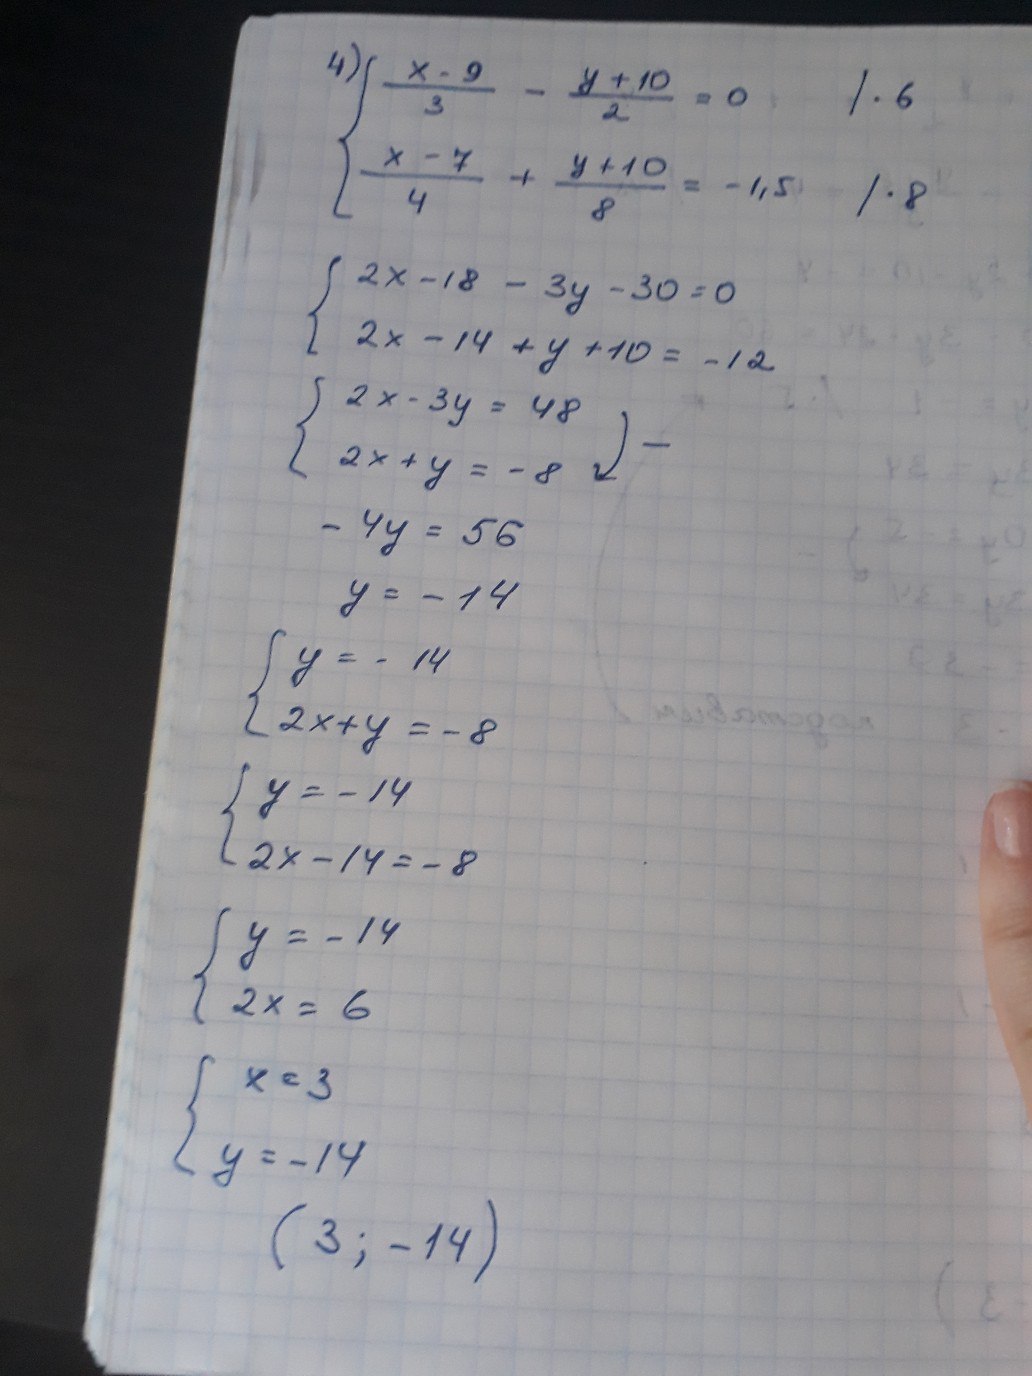 4) { (x - 9)/3 - (y + 10)/2 = 0 / · 6
(x - 7)/4 + (y + 10)/8 = -1,5 / · 8
{ 2x - 18 - 3y - 30 = 0
2x - 14 + y + 10 = -12
{ 2x - 3y = 48
2x + y = -8 ) -
- 4y = 56
y = - 14
{ y = - 14
2x + y = - 8
{ y = - 14
2x - 14 = - 8
{ y = - 14
2x = 6
{ x = 3
y = - 14
(3 ; - 14)